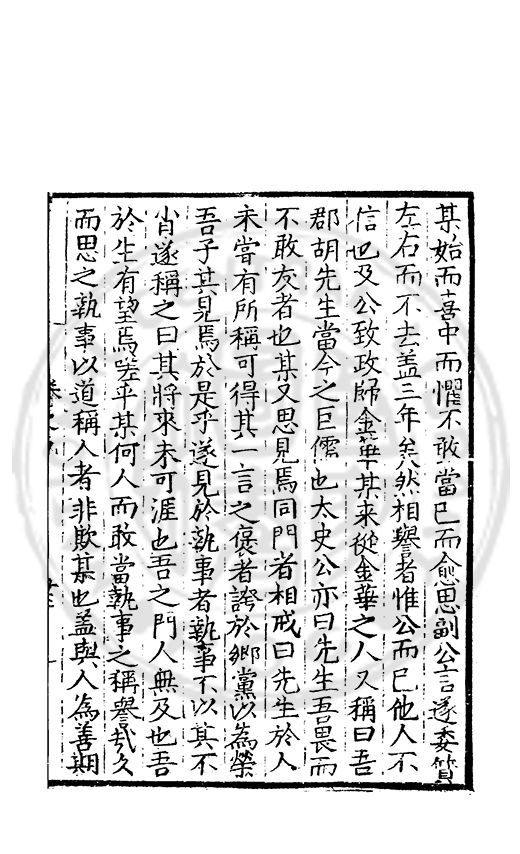 某始而喜中而懼不敢當已而愈思副公言遂委質
左右而不去盖三年矣然相譽者惟公而已他人不
信也及公致政歸金華某来從金華之人又稱曰吾
郡胡先生當今之巨儒也太史公亦曰先生吾畏而
不敢友者也某又思見焉同門者相戒曰先生於人
未嘗有所稱可得其一言之褒者誇於鄉黨以為榮
吾子其見焉於是乎遂見於執事者執事不以其不
肖遂稱之曰其將來未可涯也吾之門人無及也吾
於生有望焉嗟乎某何人而敢當執事之稱譽哉久
而思之執事以道稱人者非欺某也盖與人為善期